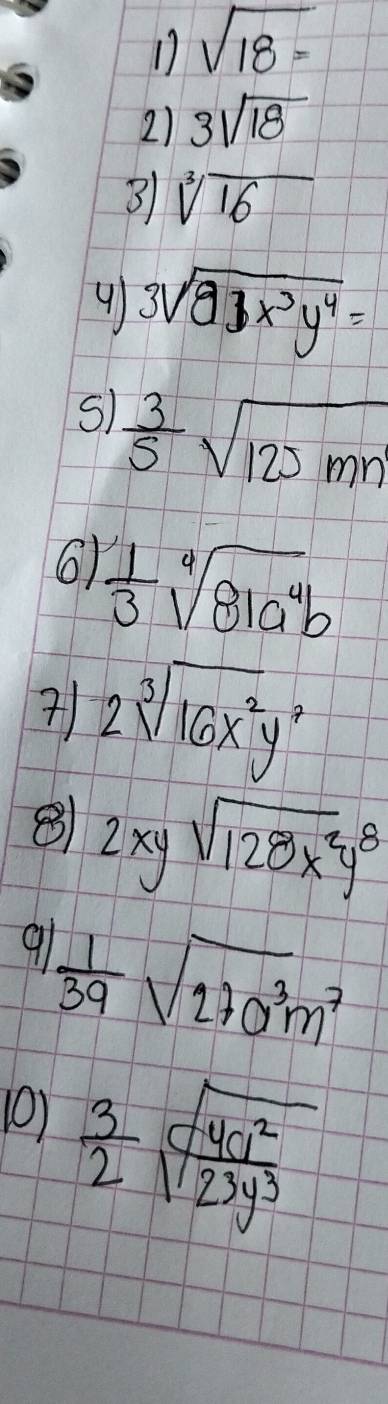 1) √18 =
2) 3√18
3) ∛16
4) 3√83x³y⁴ =
5) 3/5 √125 mn
6) 1/3 ∜81a⁴b
7) 2∛16x²y⁷
8) 2xy √128x²y⁸
9) 1/39 √27a³m⁷
10) 3/2 √4a²/23y³